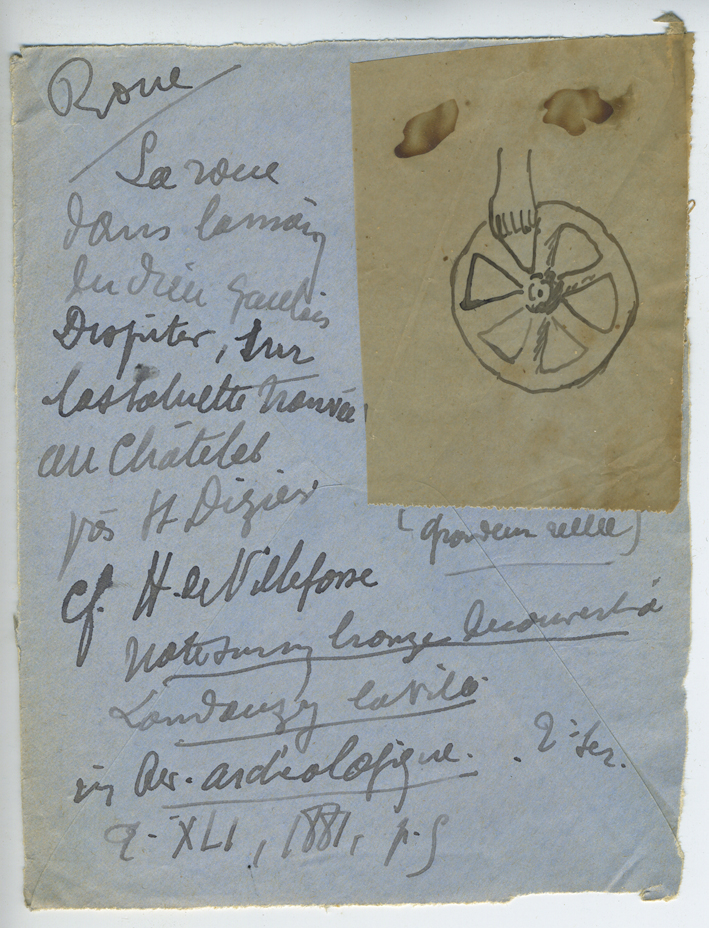 Roue
La roue
dans la main
du dieu Gaulois
Dispiter, sur
la statuette trouvée
au Châtelet
près St Dizier
(grandeur réelle)
cf. H. de Villefosse
Note sur un bronze découvert à
Landouzy la Ville
in Rev. archéologique. 2e Ser.
t. XLI, 1881, p.